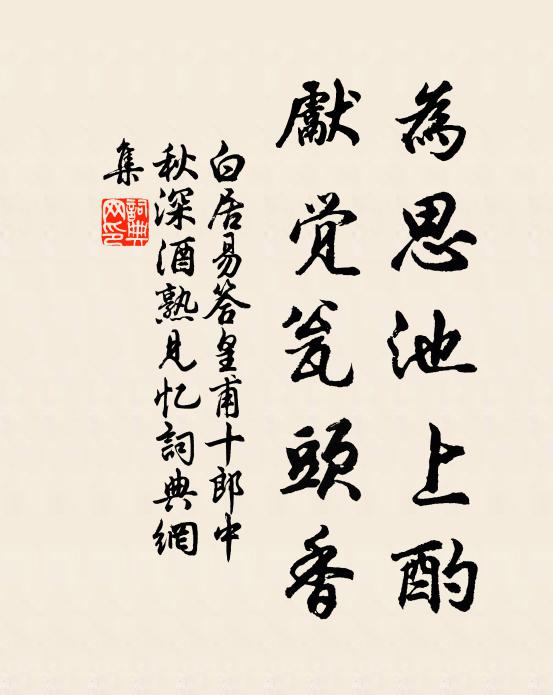 為思池上酌
獻觉瓮頭香
白居易答皇甫十郎中
秋深酒熟见忆詞典網
集
詞典
网印